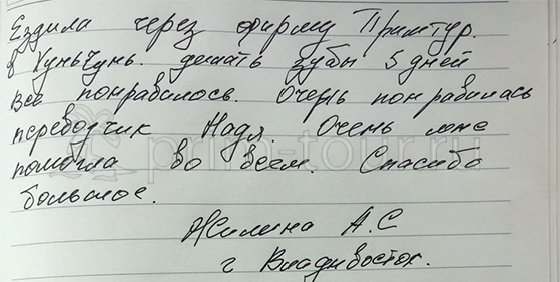 Ездила через фирму Примтур.
в Хуньчунь. делать зубы 5 дней
Все понравилось. Очень понравилась
переводчик Надя Очень мне
помогла во всём. Спасибо
большое.
Жилина А.С
г Владивосток.
prim-tour.ru